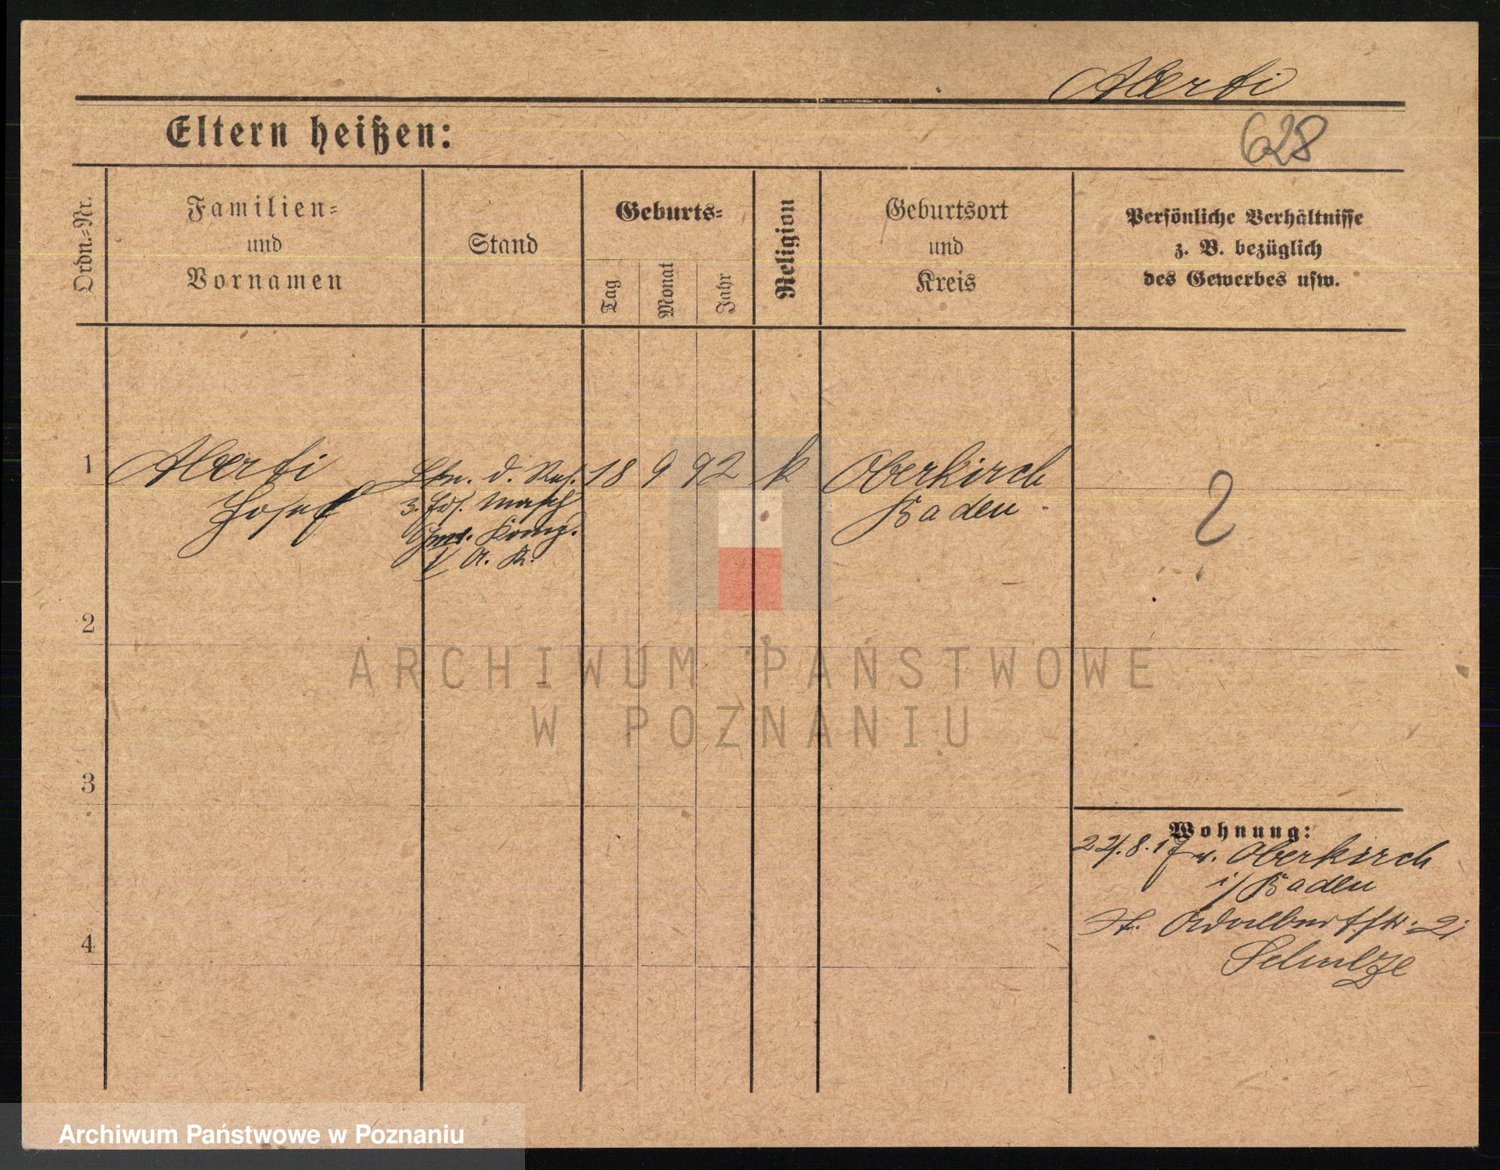 Alberti
Eltern heißen:
628
Ordn.=Nr.
Familien=
und
Vornamen
Stand
Geburts=
Tag
Monat
Jahr
Religion
Geburtsort
und
Kreis
Persönliche Verhältnisse
z. B. bezüglich
des Gewerbes usw.
1
Alberti
Josef
Ltn. d. Res.
Komp.
18
9
92
k
Oberkirch
Baden
2
3
4
Wohnung:
8.17 v. Oberkirch
i/Baden
St. Adalbertstr. 2
Schulze
ARCHIWUM PAŃSTWOWE
W POZNANIU
Archiwum Państwowe w Poznaniu